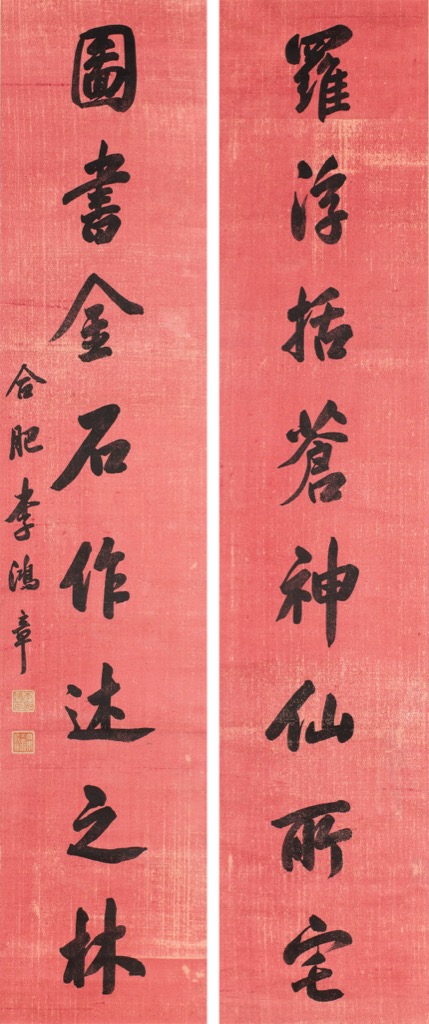 羅浮括蒼神仙所宅
圖書金石作述之林
合肥李鴻章